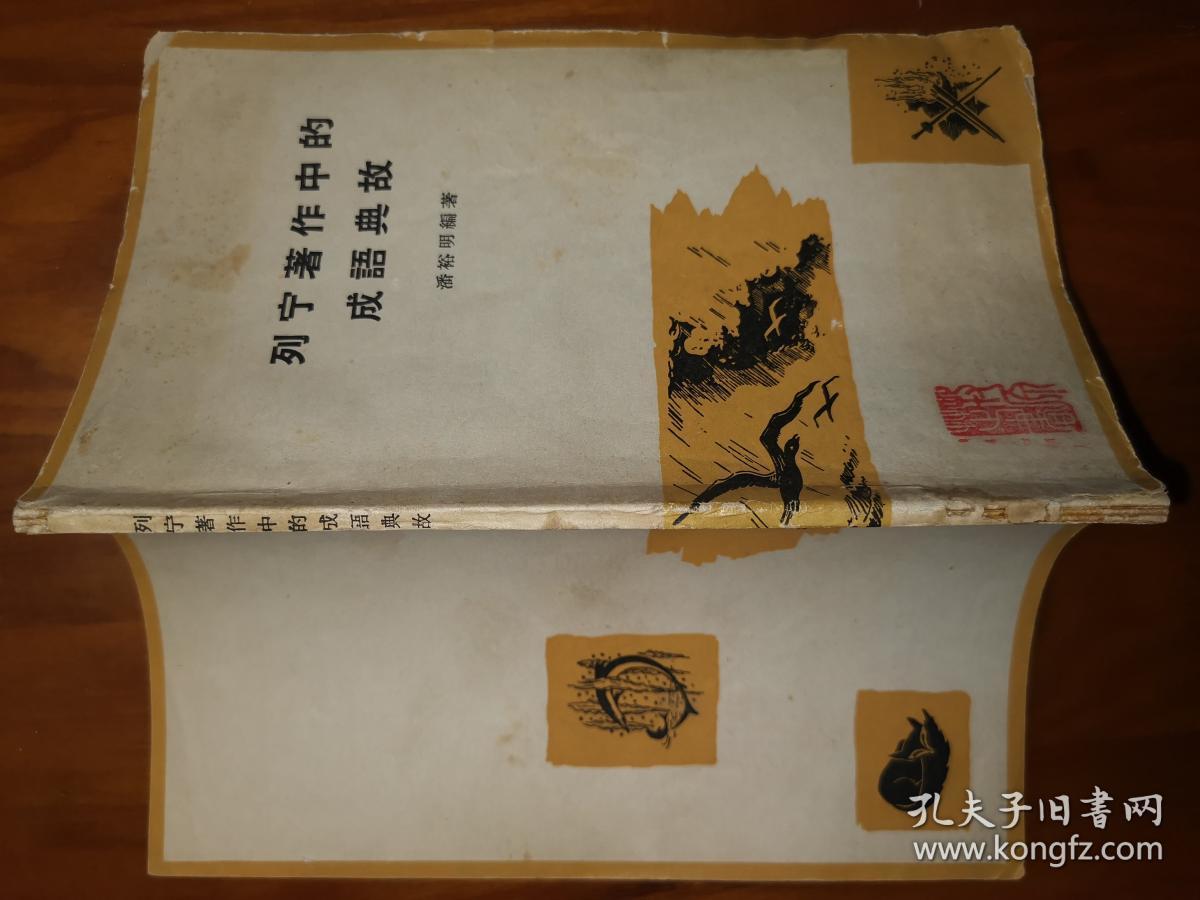 列宁著作中的
成語典故
潘裕明編著
列宁著作中的成語典故
孔夫子旧书网
www.kongfz.com